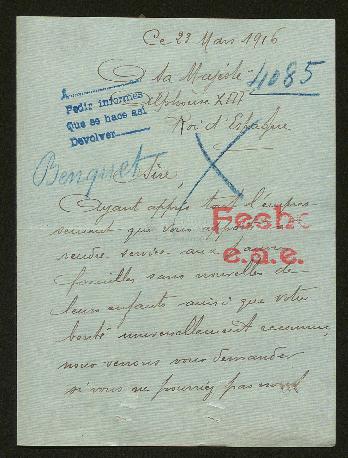 Ce 29 Mars 1916
A Sa Majesté
4085
Alphonse XIII
Roi d'Espagne
A
Pedir informes
Que se hace así
Devolver
Benquet
Sire,
Ayant appris tout l'empres-
sement que vous apportez
rendre service aux pauvres
Fecho
familles sans nouvelles de
e.a.e.
leurs enfants ainsi que votre
bonté universellement reconnue,
nous venons vous demander
si vous ne pourriez pas nous